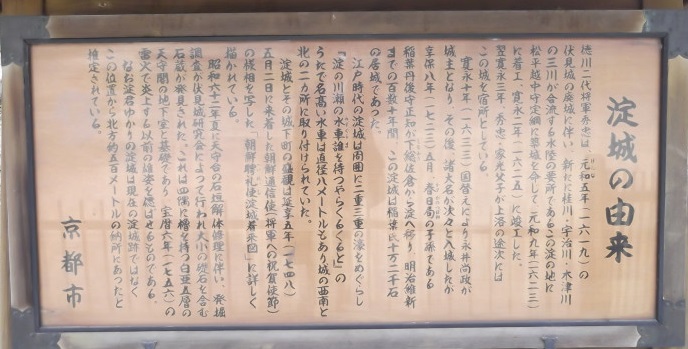 淀城の由来
徳川二代将軍秀忠は、元和五年(一六一九)の
伏見城の廃城に伴い、新たに桂川・宇治川・木津川
の三川が合流する水陸の要所であるこの淀の地に
松平越中守定綱に築城を命じて、元和九年(一六二三)
に着工、寛永二年(一六二五)に竣工した。
翌寛永三年、秀忠・家光父子が上洛の途次には
この城を宿所としている。
寛永十年(一六三三)国替えにより永井尚政が
城主となり、その後、諸大名が次々と入城したが
享保八年(一七二三)五月、春日局の子孫である
稲葉丹後守正知が下総佐倉から淀へ移り、明治維新
までの百数十年間、この淀城は稲葉氏十万二千石
の居城であった。
江戸時代の淀城は周囲に二重三重の濠をめぐらし
「淀の川瀬の水車誰を待つやらくるくると」の
うたで名高い水車は直径八メートルもあり城の西南と
北の二カ所に取り付けられていた。
淀城とその城下町の盛観は延享五年(一七四八)
五月二日に来着した朝鮮通信使(将軍への祝賀使節)
の様相を写した「朝鮮聘礼使淀城着来図」に詳しく
描かれている。
昭和六十二年夏に天守台の石垣解体修理に伴い、発掘
調査が伏見城研究会によって行われ大小の礎石を含む
石蔵が発見された。これは四隅に櫓を持つ白亜五層の
天守閣の地下室と基礎であり、宝暦六年(一七五六)の
雷火で炎上する以前の雄姿を偲ばせるものである。
なお淀君ゆかりの淀城は現在の淀城跡ではなく
この位置から北方約五百メートルの納所にあったと
推定されている。
京都市